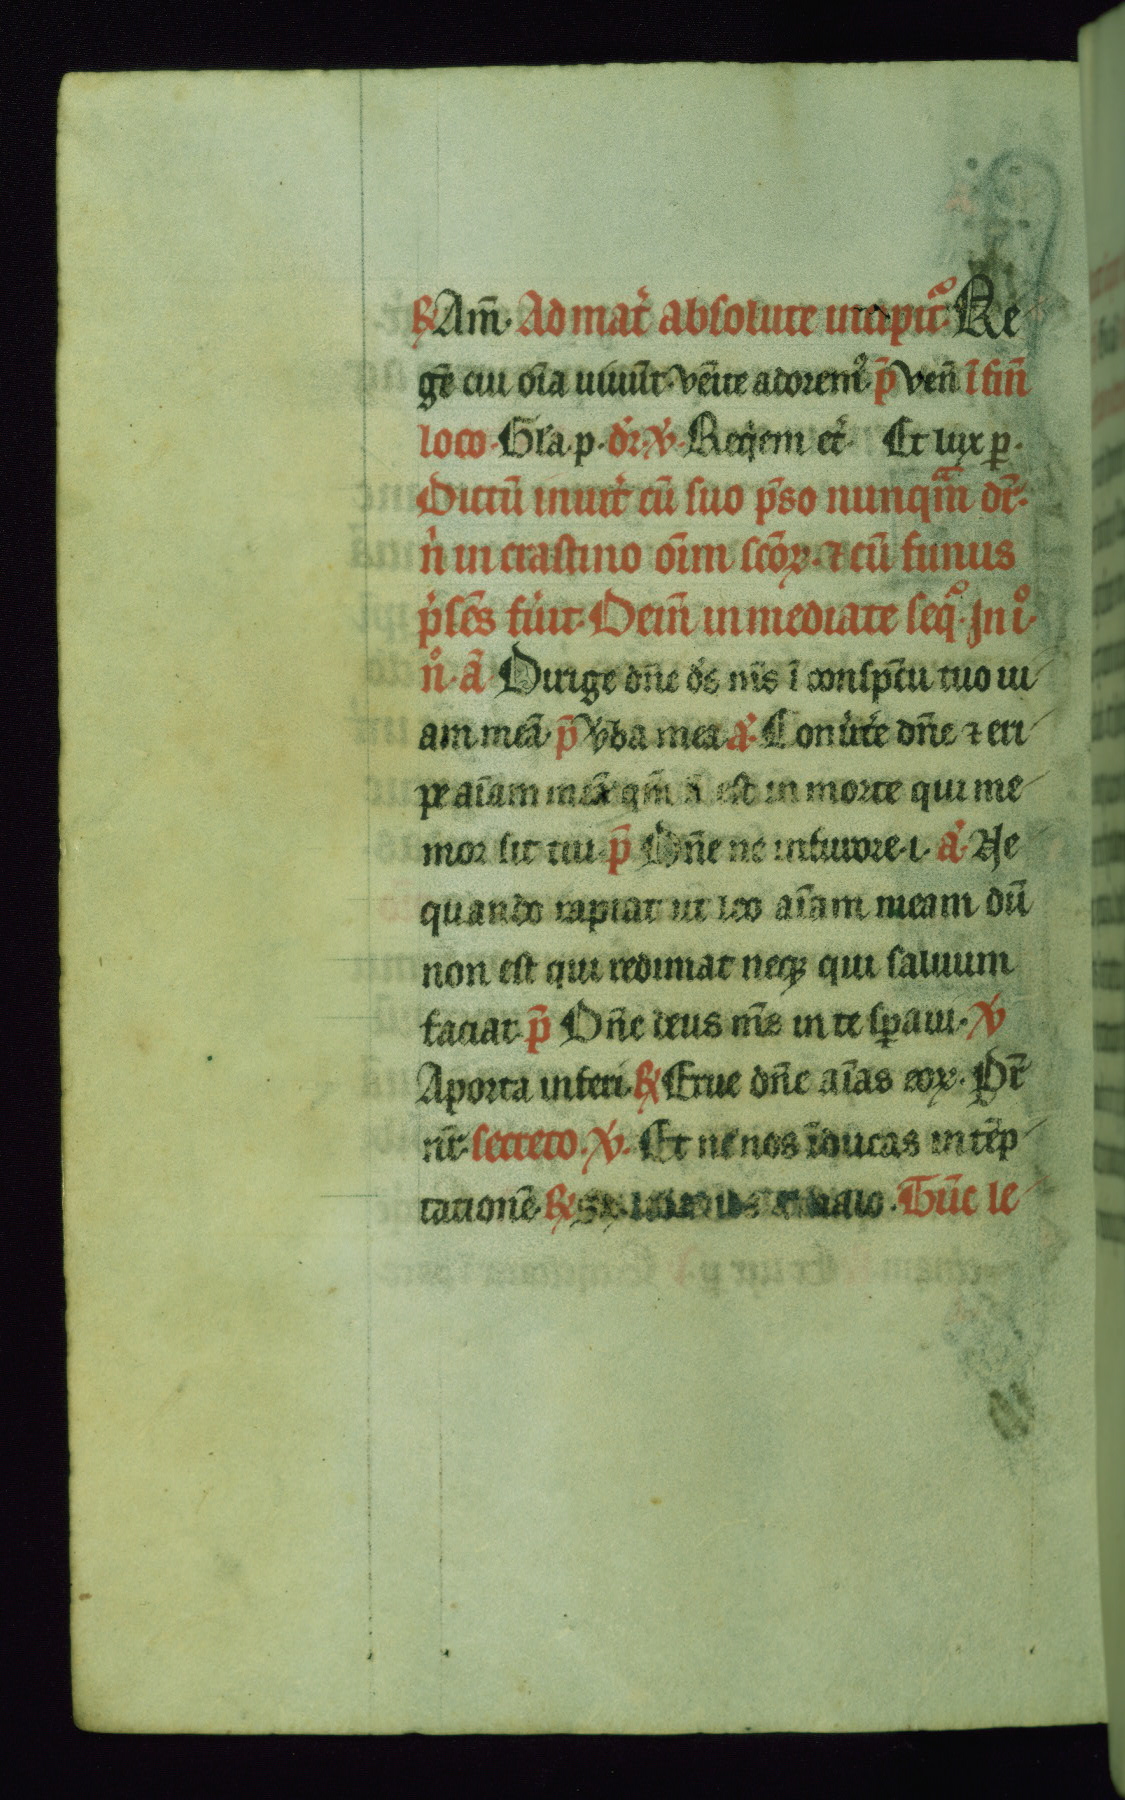 ℟ Am̄. Ad mat᷑ absolute incipit᷑ᵒ. Re
gē cui oīa uiuūt. venite adorem᷒. p̄ Ven̄ ī fin̄
loco. Gl̄a. p. dr᷑. ℣. Req̇em et᷑. Et lux ꝑ.
Dictū inuit᷑ cū suo p̄so nunqm̄ dr̄.
n᷑ in crastino oīm scōꝝ. ⁊ cū funus
p᷑sēs fu᷑it. Dein̄ inmediate seqᵒ. In i°.
n°. ā Dirige dn̄e ds᷑ m̄s ī conspc̄tu tuo ui
am meā. p̄ V᷑ba mea. a᷑. Conu᷑te᷑ dn̄e ⁊ eri
pe aīam meā qm̄ n̄ est in morte qui me
mor sit tui. p̄ Dn̄e ne infurore. i. a᷑. Ne
quando rapiat ut leo aīam meam dū
non est qui redimat neqꝫ qui saluum
faciat. p̄ Dn̄e deus m̄s in te sꝑaui. ℣
Aporta inferi. ℟ Erue dn̄e aīas eoꝝ. Pr̄
nr̄. secreto. ℣. Et ne nos īducas in tēp
tationē. ℟ Sꝫ malo. Tūc le